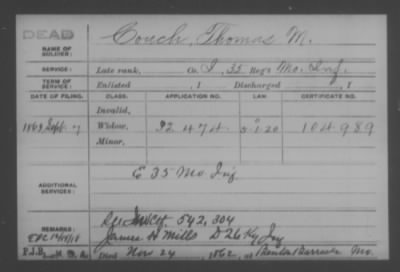 DEAD
NAME OF SOLDIER:
Couch, Thomas M.
SERVICE:
Late rank, Co. I, 35 Reg't Mo. Inf.
TERM OF SERVICE:
Enlisted , 1 Discharged , 1
DATE OF FILING. CLASS. APPLICATION NO. LAW. CERTIFICATE NO.
Invalid,
1863 Sept. 7 Widow, 32 474 104 989
Minor,
ADDITIONAL SERVICES:
E 35 Mo. Inf
REMARKS:
542,304
James Mills D 26 Ky Inf
P.J.B.
Died Nov 24, 1862, at Benton Barracks Mo.